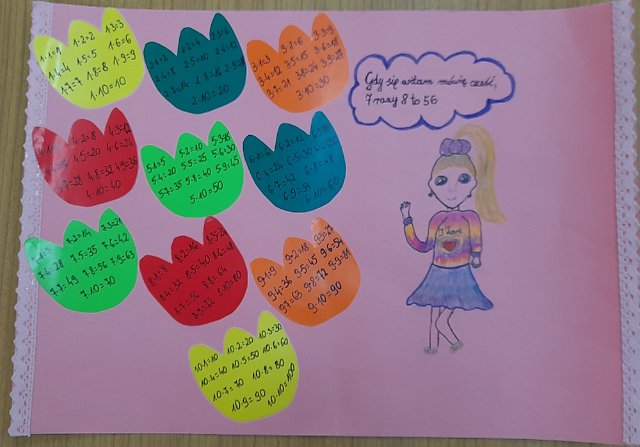 1·1=1 1·2=2 1·3=3
1·4=4 1·5=5 1·6=6
1·7=7 1·8=8 1·9=9
1·10=10
2·1=2 2·2=4 2·3=6
2·4=8 2·5=10 2·6=12
2·7=14 2·8=16 2·9=18
2·10=20
3·1=3 3·2=6 3·3=9
3·4=12 3·5=15 3·6=18
3·7=21 3·8=24 3·9=27
3·10=30
Gdy się witam mówię cześć,
7 razy 8 to 56
4·2=8 4·3=12
4·5=20 4·6=24
4·7=28 4·8=32 4·9=36
4·10=40
5·1=5 5·2=10 5·3=15
5·4=20 5·5=25 5·6=30
5·7=35 5·8=40 5·9=45
5·10=50
6·2=12
6·4=24 6·5=30
6·7=42 6·8=48
6·9=54 6·10=60
I love
7·2=14 7·3=21
7·4=28 7·5=35 7·6=42
7·7=49 7·8=56 7·9=63
7·10=70
8·1=8 8·2=16 8·3=24
8·4=32 8·5=40 8·6=48
8·7=56 8·8=64
8·9=72 8·10=80
9·1=9 9·2=18 9·3=27
9·4=36 9·5=45 9·6=54
9·7=63 9·8=72 9·9=81
9·10=90
10·1=10 10·2=20 10·3=30
10·4=40 10·5=50 10·6=60
10·7=70 10·8=80
10·9=90 10·10=100